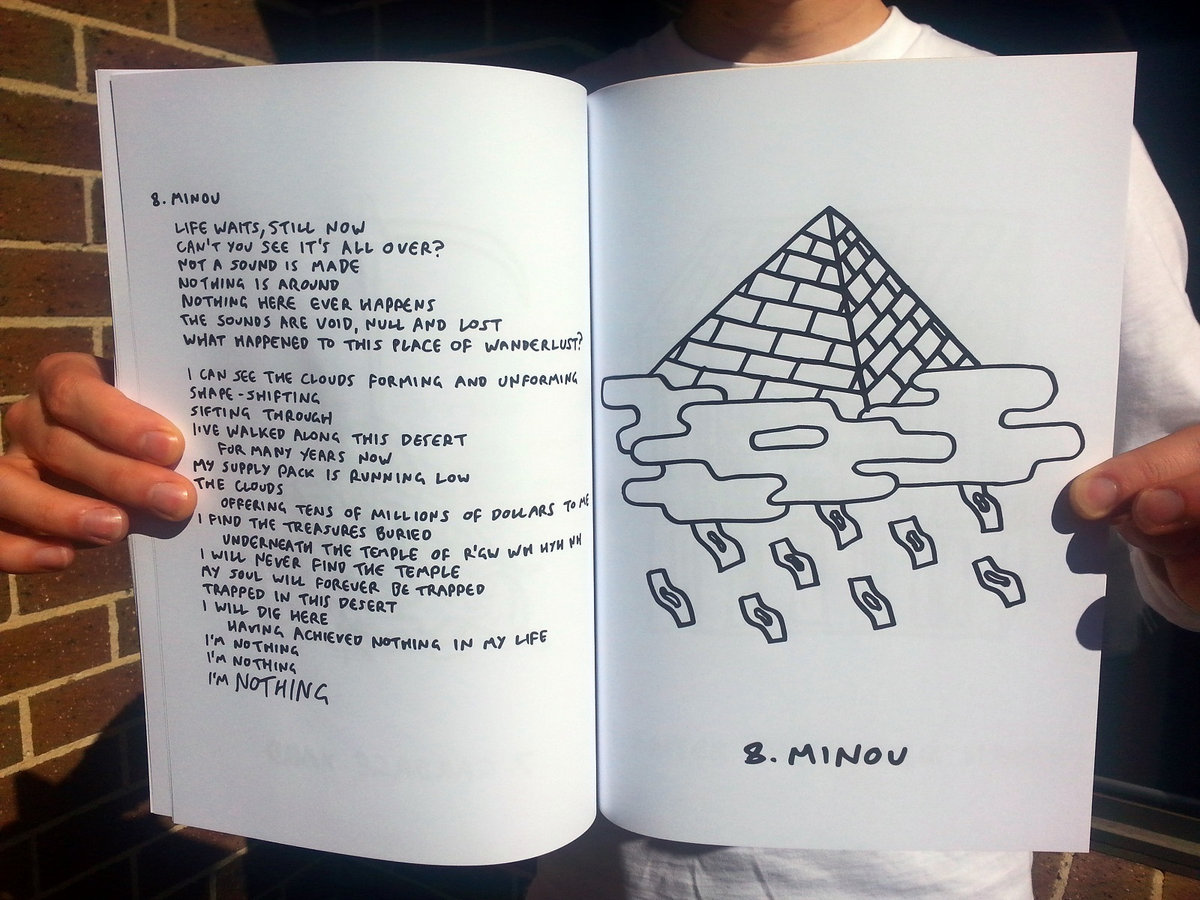 8. MINOU
LIFE WAITS, STILL NOW
CAN'T YOU SEE IT'S ALL OVER?
NOT A SOUND IS MADE
NOTHING IS AROUND
NOTHING HERE EVER HAPPENS
THE SOUNDS ARE VOID, NULL AND LOST
WHAT HAPPENED TO THIS PLACE OF WANDERLUST?
I CAN SEE THE CLOUDS FORMING AND UNFORMING
SHAPE-SHIFTING
SIFTING THROUGH
I'VE WALKED ALONG THIS DESERT
FOR MANY YEARS NOW
MY SUPPLY PACK IS RUNNING LOW
THE CLOUDS
OFFERING TENS OF MILLIONS OF DOLLARS TO ME
I FIND THE TREASURES BURIED
UNDERNEATH THE TEMPLE OF R'GW WH HYH
I WILL NEVER FIND THE TEMPLE
MY SOUL WILL FOREVER BE TRAPPED
TRAPPED IN THIS DESERT
I WILL DIG HERE
HAVING ACHIEVED NOTHING IN MY LIFE
I'M NOTHING
I'M NOTHING
I'M NOTHING
8. MINOU